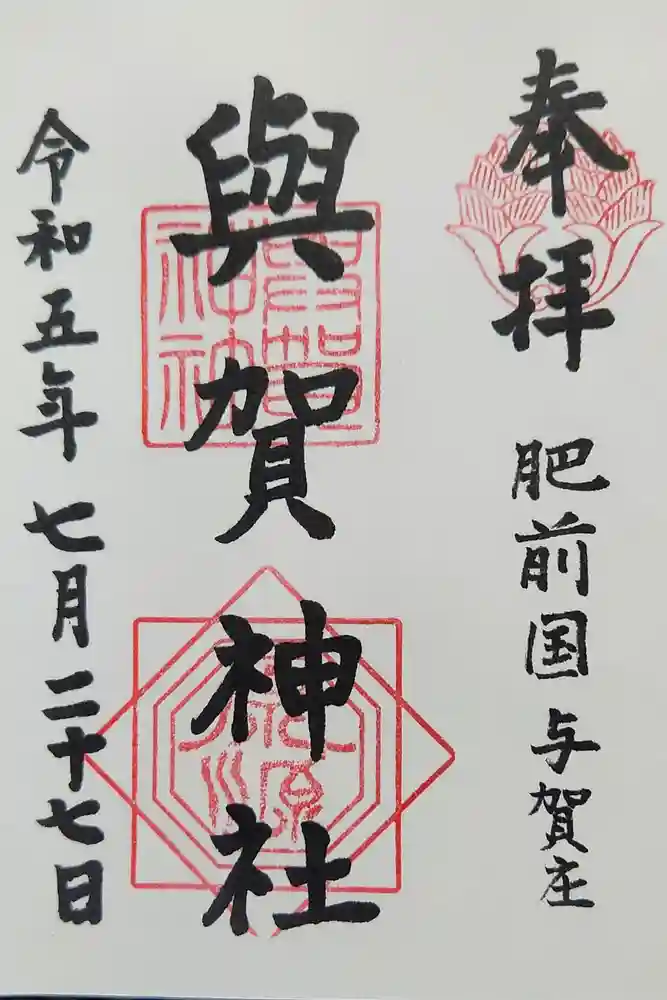 奉拝 肥前国 与賀庄
與賀神社
令和五年 七月二十七日